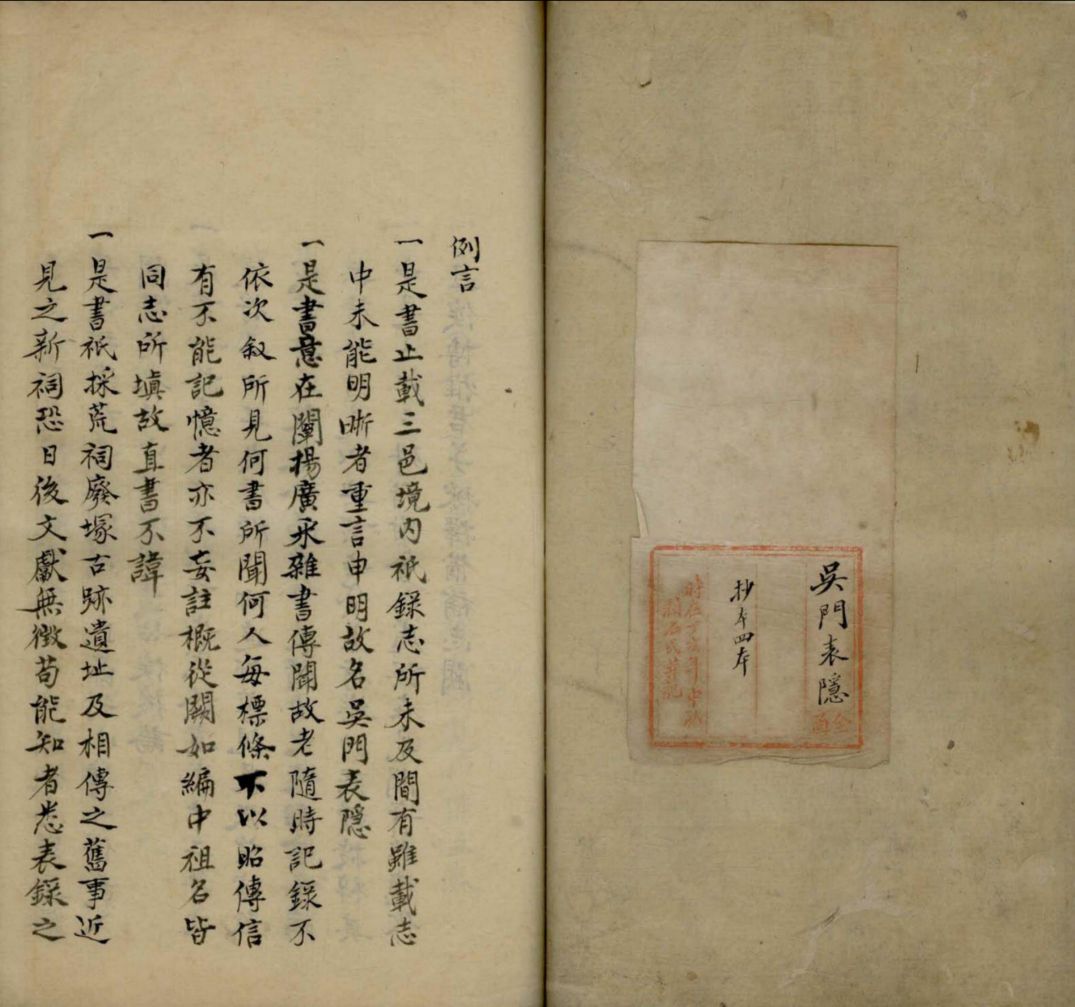 吳門表隱
全函
抄本四本
例言
一是書止載三邑境內祇錄志所未及間有雖載志
中未能明晰者重言申明故名吳門表隱
一是書意在闡揚廣永雜書傳聞故老隨時記錄不
依次叙所見何書所聞何人每標條不以昭傳信
有不能記憶者亦不妄註概從闕如編中祖名皆
同志所填故直書不諱
一是書祇採荒祠廢塚古跡遺址及相傳之舊事近
見之新祠恐日後文獻無徵苟能知者悉表錄之